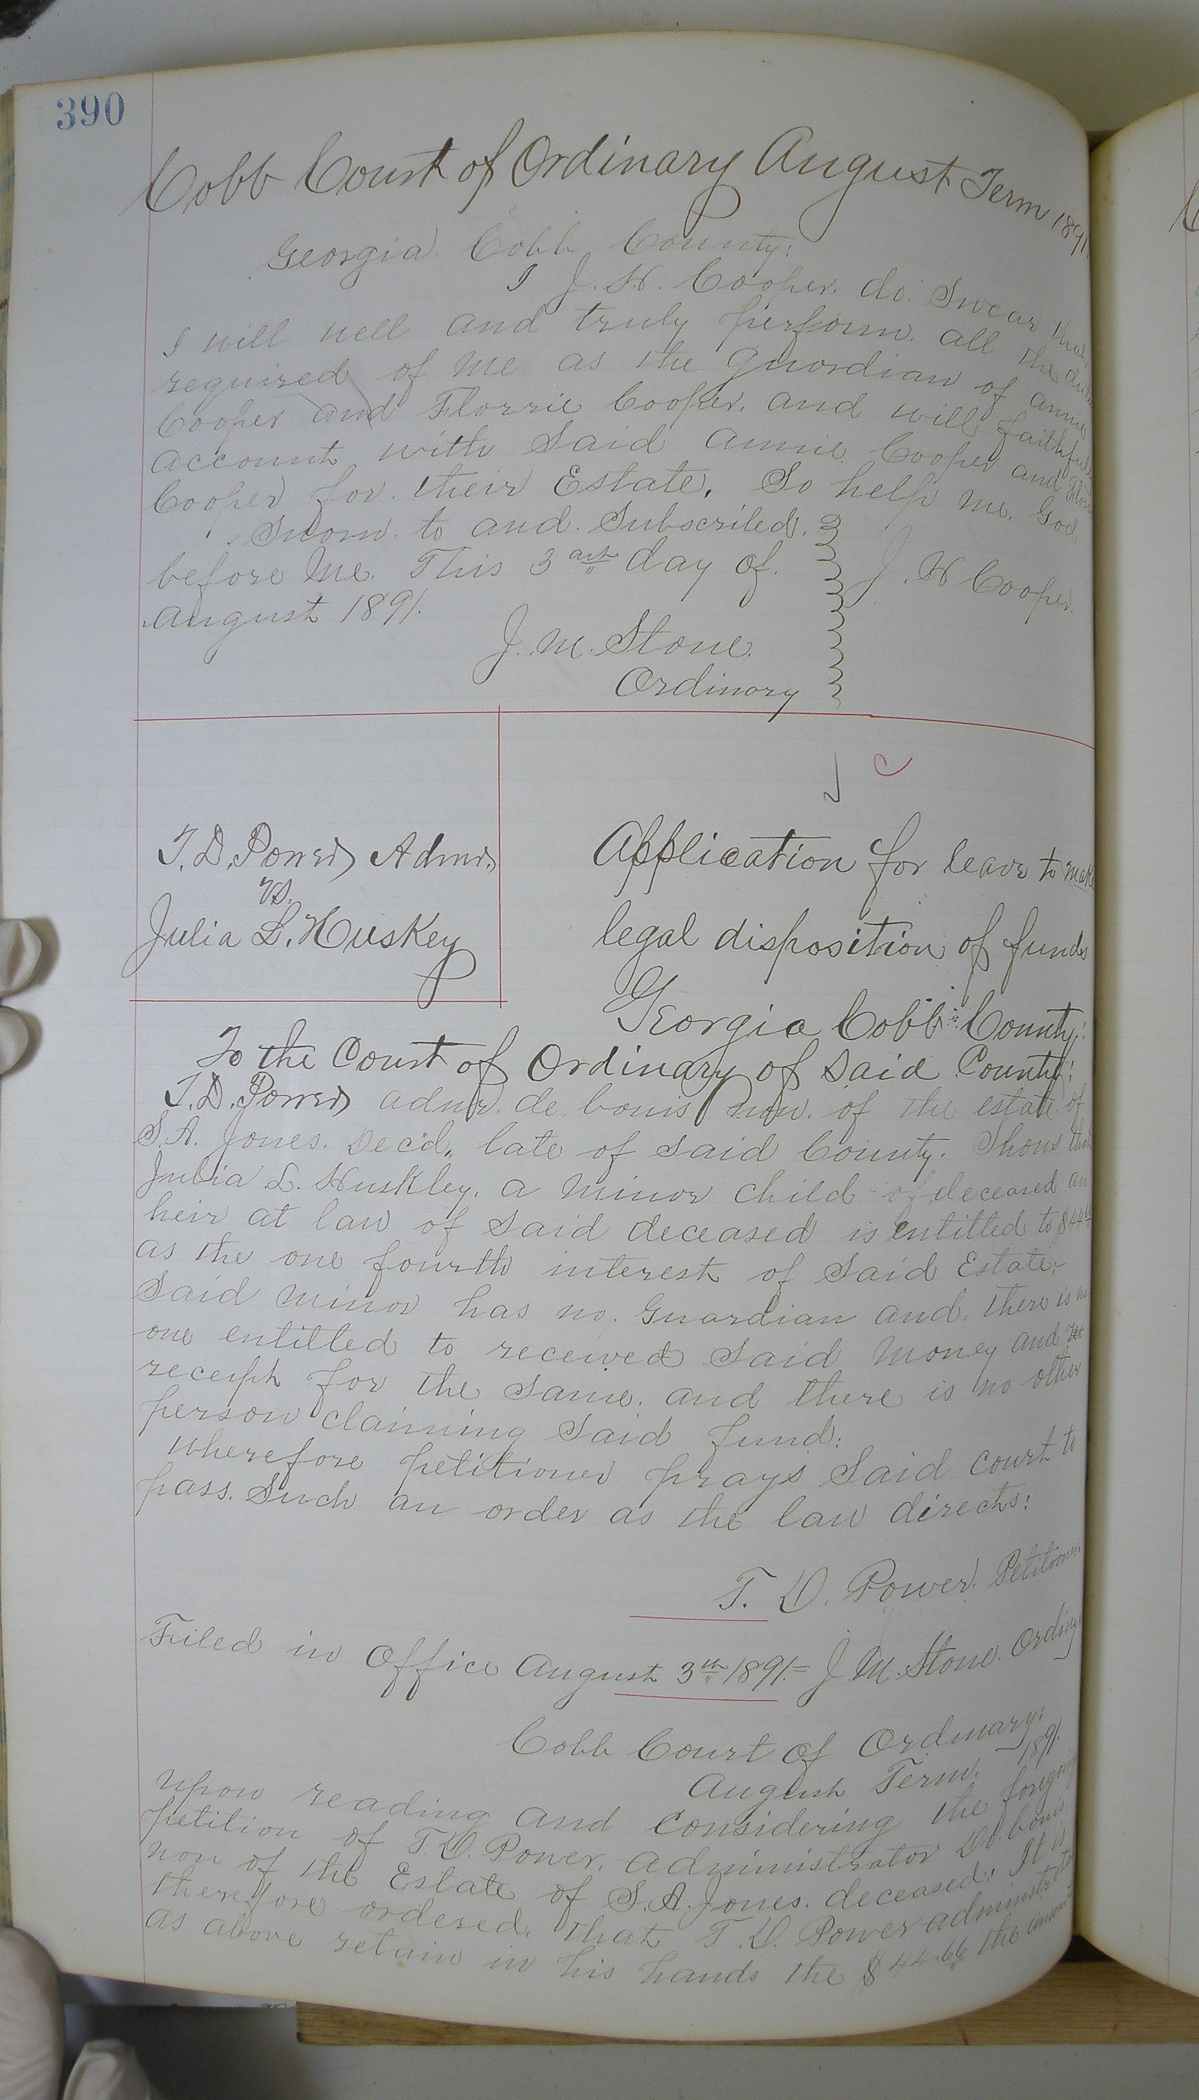 390
Cobb Court of Ordinary August Term 1891
Georgia Cobb County:
I J. H. Cooper. do Swear that
I will well and truly perform. all the
required of Me as the guardian of Annie
Cooper and Florrie Cooper. and will faithful
account with Said Annie Cooper and
Cooper for their Estate. So help me. God.
Sworn to and Subscribed.
before Me. This 3 day of.
August 1891.
J. H Cooper.
J. M. Stone.
Ordinary
T. D. Power Admr
vs.
Julia L. Huskey
Application for leave to make
legal disposition of funds
Georgia Cobb County:
To the Court of Ordinary of Said County:
T. D. Power admr. de bonis non. of the estate of
S. A. Jones. Dec'd,. late of Said County. Shows that
Julia L. Huskley. a Minor child of deceased an
heir at law of Said deceased is entitled to
as the one fourth interest of Said Estate.
Said Minor has no. Guardian and. there is no
one entitled to received Said Money and
receipt for the Same. and there is no other
person claiming Said fund:
Wherefore petitioner prays Said court to
pass. Such an order as the law directs:
T. D. Power. Petitioner.
Filed in Office August 3th 1891.= J. M. Stone.
Cobb Court of Ordinary.
August Term. 1891.
Upon reading and Considering the foregoing
petition of T. D. Power. administrator De bonis
non of the Estate of S. A. Jones. deceased: It is
therefore ordered. that T. D. Power
as above retain in his hands the $44.66 the amount